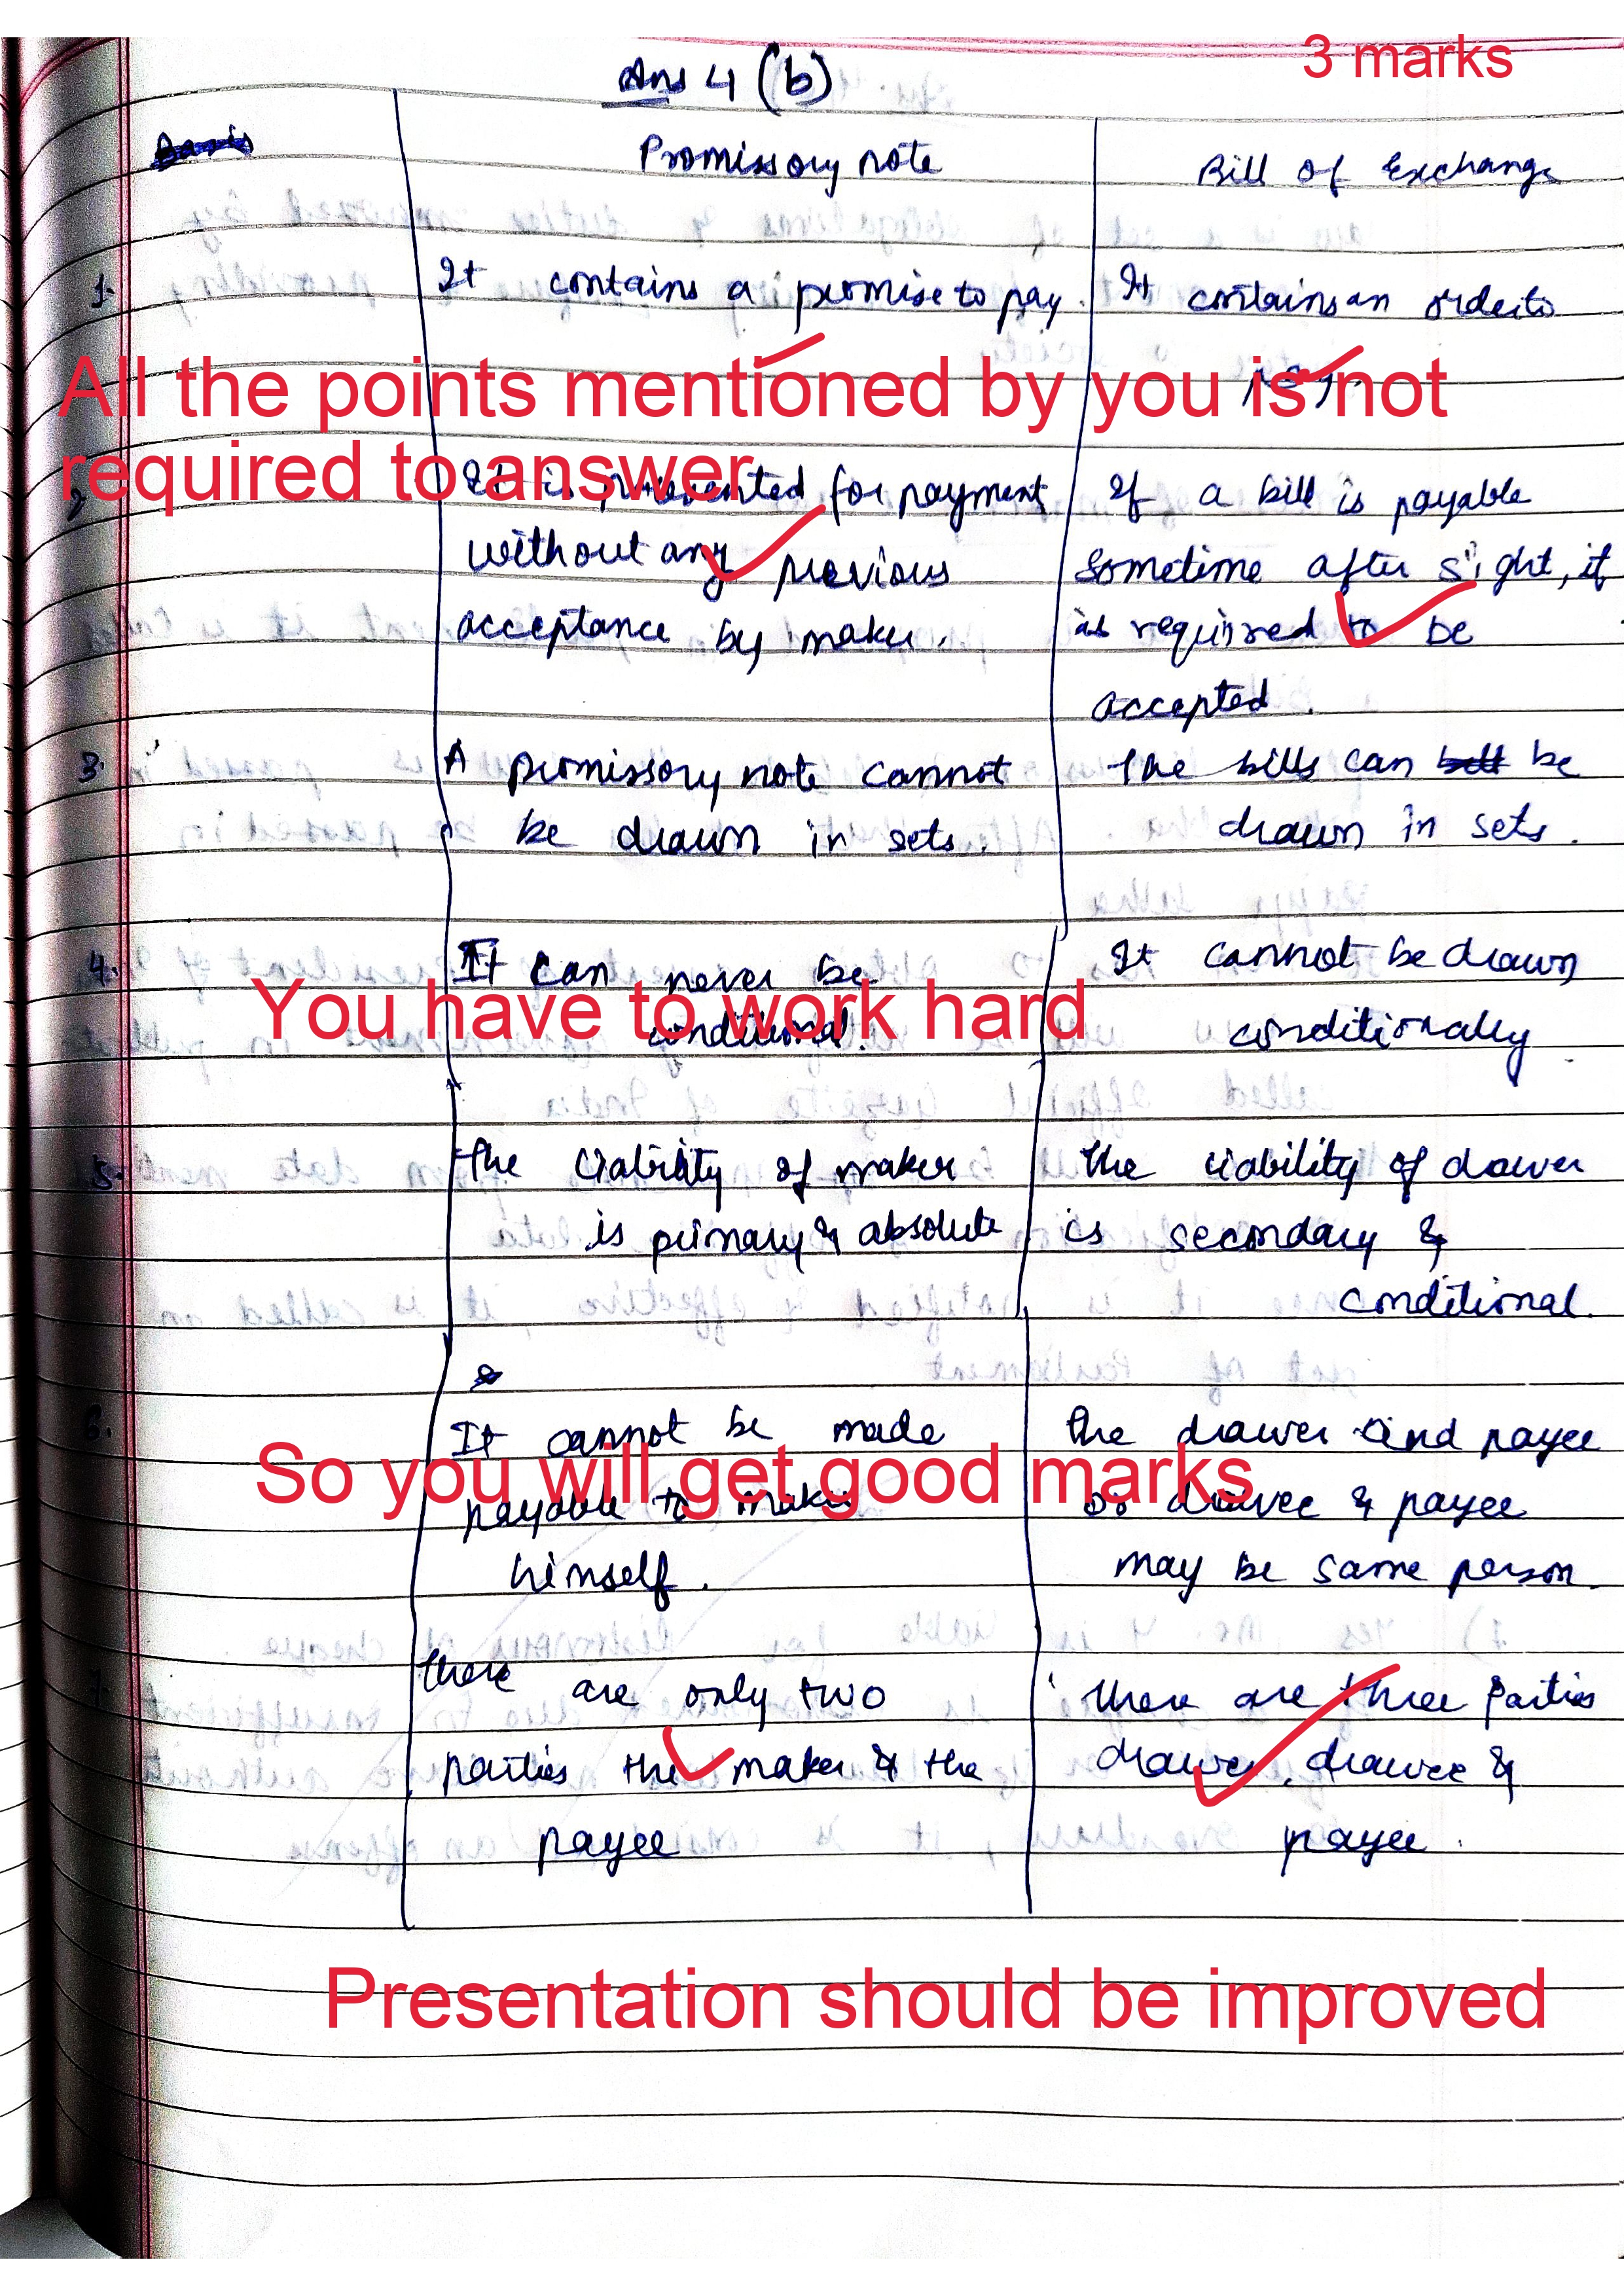 3 marks
Ans 4 (b)
Promissory note
Bill of Exchange
1. It contains a promise to pay. It contains an order to
pay.
All the points mentioned by you is not
required to answer
2 It is presented for payment If a bill is payable
without any previous sometime after sight, it
acceptance by maker. is required to be
accepted.
3. A promissory note cannot The bills can be
be drawn in sets. drawn in sets.
4. It can never be It cannot be drawn
conditional. conditionally
You have to work hard
5. The liability of maker The liability of drawer
is primary & absolute is secondary &
conditional.
6. It cannot be made The drawer and payee
payable to maker or drawee & payee
himself. may be same person.
So you will get good marks
7. There are only two There are three parties
parties the maker & the drawer, drawee &
payee payee.
Presentation should be improved